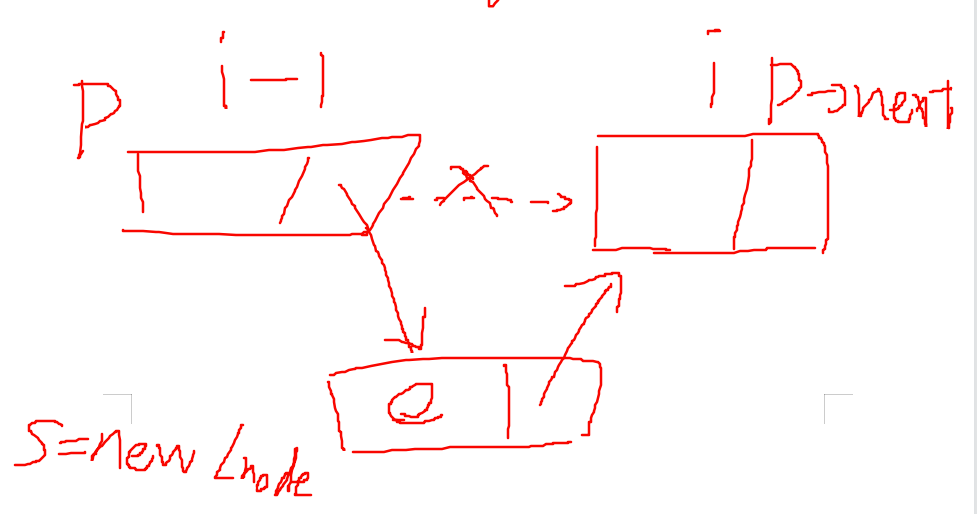 P i-1 i P→next
e
S=new Lnode